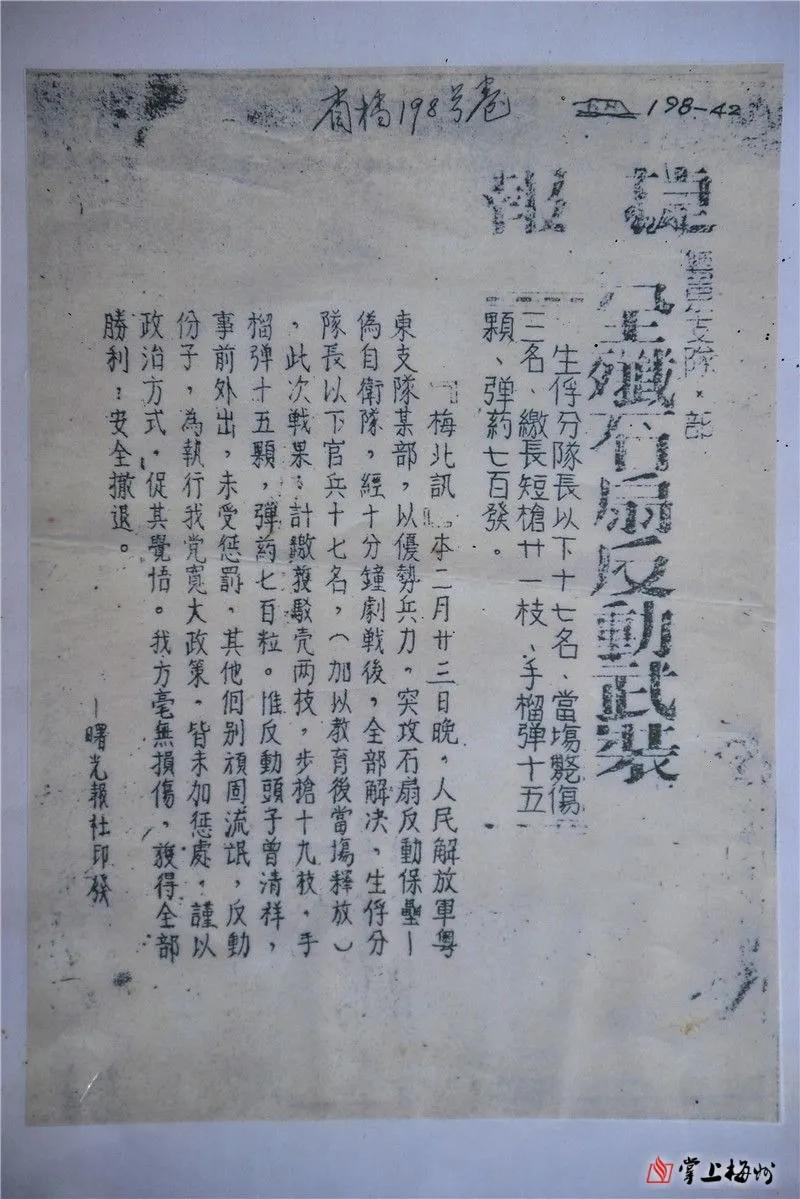 省檔198号卷
198-42
捷報
粵東支隊×部
全殲石扇反動武裝
生俘分隊長以下十七名、當場斃傷
三名、繳長短槍廿一枝、手榴弹十五
顆、弹药七百發。
梅北訊 本二月廿三日晚，人民解放軍粵
東支隊某部，以優勢兵力，突攻石扇反動保壘—
偽自衛隊，經十分鐘劇戰後，全部解决，生俘分
隊長以下官兵十七名，（加以教育後當場釋放）
，此次戰果，計繳獲駁壳两枝，步槍十九枝，手
榴弹十五顆，弹药七百粒。惟反動頭子曾清祥，
事前外出，未受惩罰，其他個别頑固流氓，反動
份子，為執行我党寬大政策，皆未加惩處，謹以
政治方式，促其覺悟。我方毫無損傷，獲得全部
勝利；安全撤退。
—曙光報社印發
掌上梅州